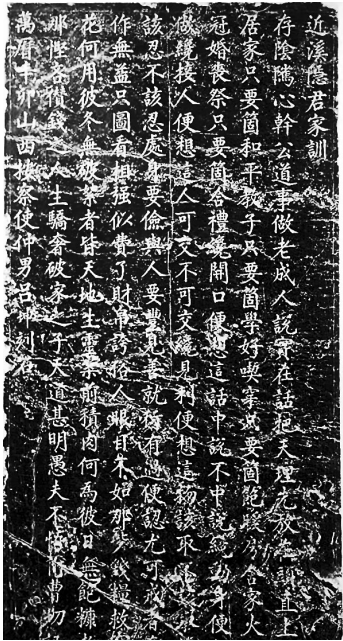 近溪隱君家訓
存陰隲心幹公道事做老成人說實在話把天理先放在頭直上
居家只要箇和平教子只要箇學好喫穿只要箇飽暖房舍家火
冠婚喪祭只要箇合禮纔開口便想這話中說不中說纔動身便
做纔接人便想這人可交不可交纔見利便想這物該取不該取
該忍不該忍處身要儉與人要豐見善就行有過便認尤可戒者
作無益只圖看相強似費了財帛誇俗人眼目不如始那錢糧
花何用彼冬無破絮者皆天地生靈案前積肉何為彼日無飽糠
那慳吝攢錢之人生驕奢破家之子天道甚明愚夫不悟曹切
萬曆辛卯山西按察使仲男呂坤刻石